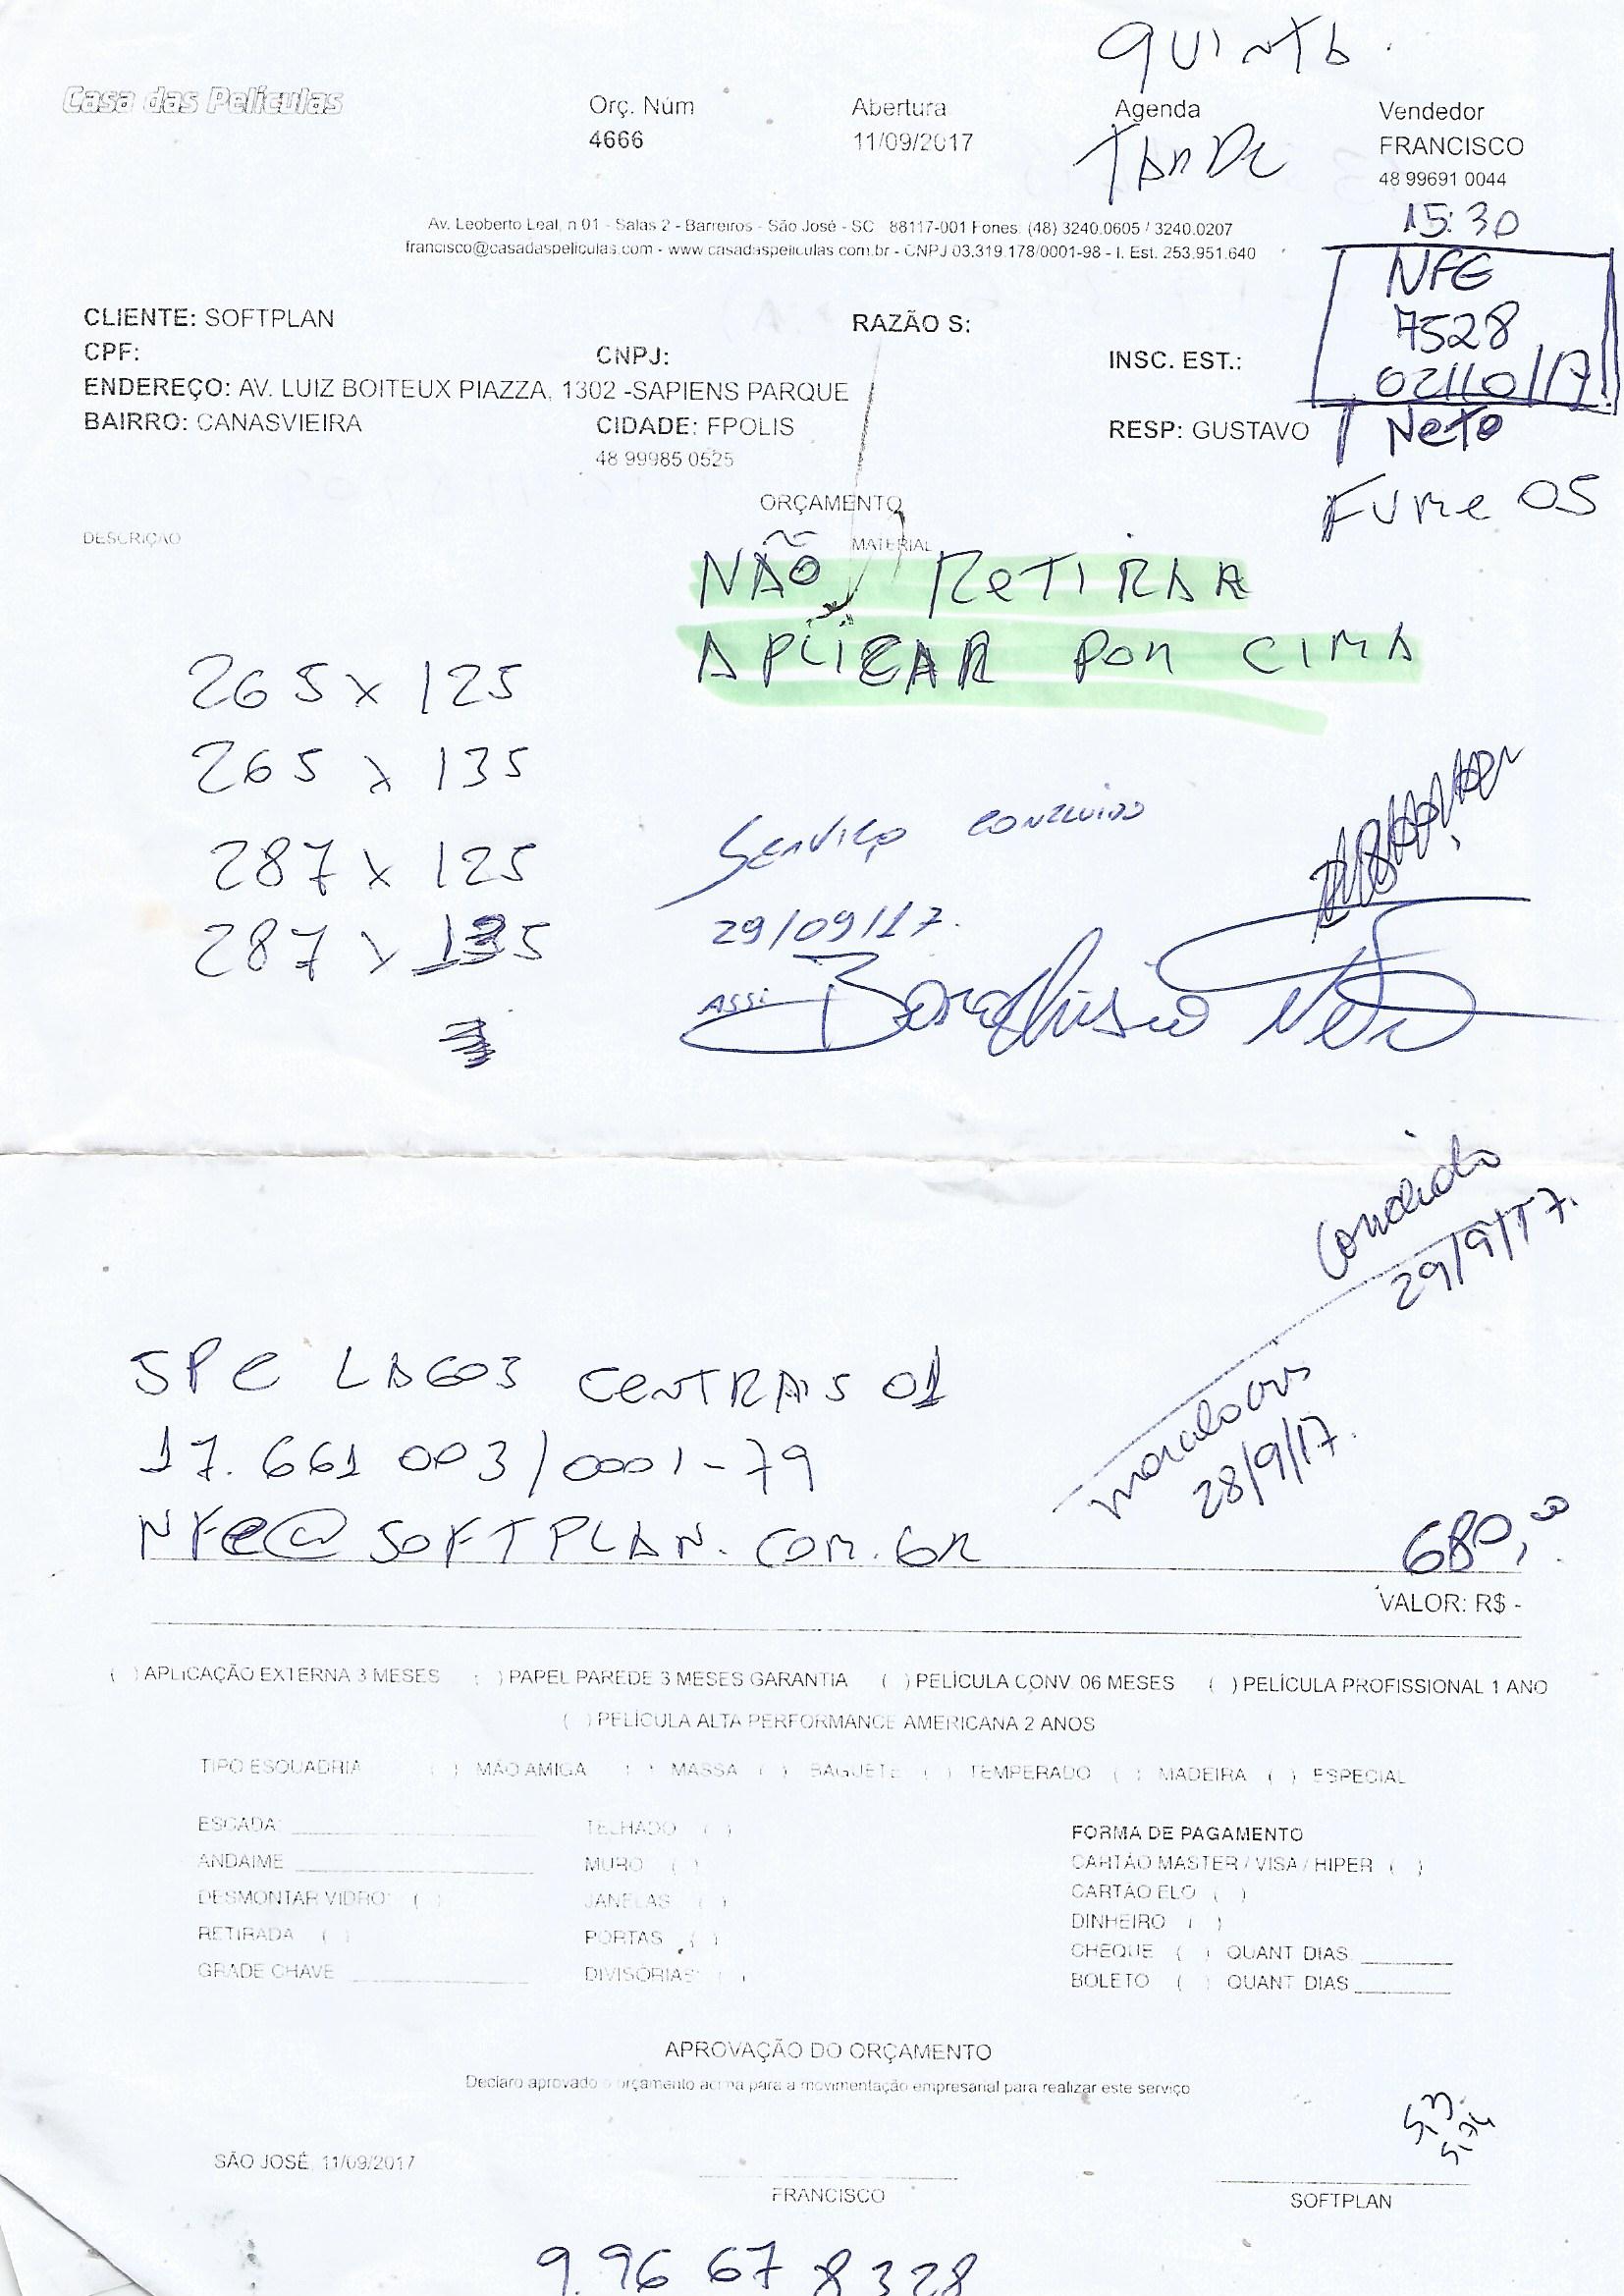 QUINTA
Casa das Películas
Orç. Núm Abertura Agenda Vendedor
4666 11/09/2017 TARDE FRANCISCO
48 99691 0044
15:30
Av. Leoberto Leal, n 01 - Salas 2 - Barreiros - São José - SC 88117-001 Fones: (48) 3240.0605 / 3240.0207
francisco@casadaspeliculas.com - www.casadaspeliculas.com.br - CNPJ 03.319.178/0001-98 - I. Est. 253.951.640
NFE
7528
02/10/17
Neto
Fume 05
CLIENTE: SOFTPLAN RAZÃO S:
CPF: CNPJ: INSC. EST.:
ENDEREÇO: AV. LUIZ BOITEUX PIAZZA, 1302 -SAPIENS PARQUE
BAIRRO: CANASVIEIRA CIDADE: FPOLIS RESP: GUSTAVO
48 99985 0525
ORÇAMENTO
DESCRIÇÃO MATERIAL
NÃO RETIRAR
APLICAR POR CIMA
265 x 125
265 x 135
287 x 125
287 x 135
Serviço concluido
29/09/17.
ASSI
Neto
Concluido
29/9/17.
28/9/17.
SPE LAGOS CENTRAIS 01
17.661 003/0001-79
NFe@SOFTPLAN.COM.BR
680,00
VALOR: R$ -
( ) APLICAÇÃO EXTERNA 3 MESES ( ) PAPEL PAREDE 3 MESES GARANTIA ( ) PELÍCULA CONV 06 MESES ( ) PELÍCULA PROFISSIONAL 1 ANO
( ) PELÍCULA ALTA PERFORMANCE AMERICANA 2 ANOS
TIPO ESQUADRIA ( ) MÃO AMIGA ( ) MASSA ( ) BAGUETE ( ) TEMPERADO ( ) MADEIRA ( ) ESPECIAL
ESCADA: TELHADO ( ) FORMA DE PAGAMENTO
ANDAIME MURO ( ) CARTÃO MASTER / VISA / HIPER ( )
DESMONTAR VIDRO: ( ) JANELAS ( ) CARTÃO ELO ( )
RETIRADA ( ) PORTAS ( ) DINHEIRO ( )
GRADE CHAVE DIVISÓRIAS: ( ) CHEQUE ( ) QUANT DIAS
BOLETO ( ) QUANT DIAS
APROVAÇÃO DO ORÇAMENTO
Declaro aprovado o orçamento acima para a movimentação empresarial para realizar este serviço
SÃO JOSÉ, 11/09/2017
FRANCISCO SOFTPLAN
9.96 67 8328